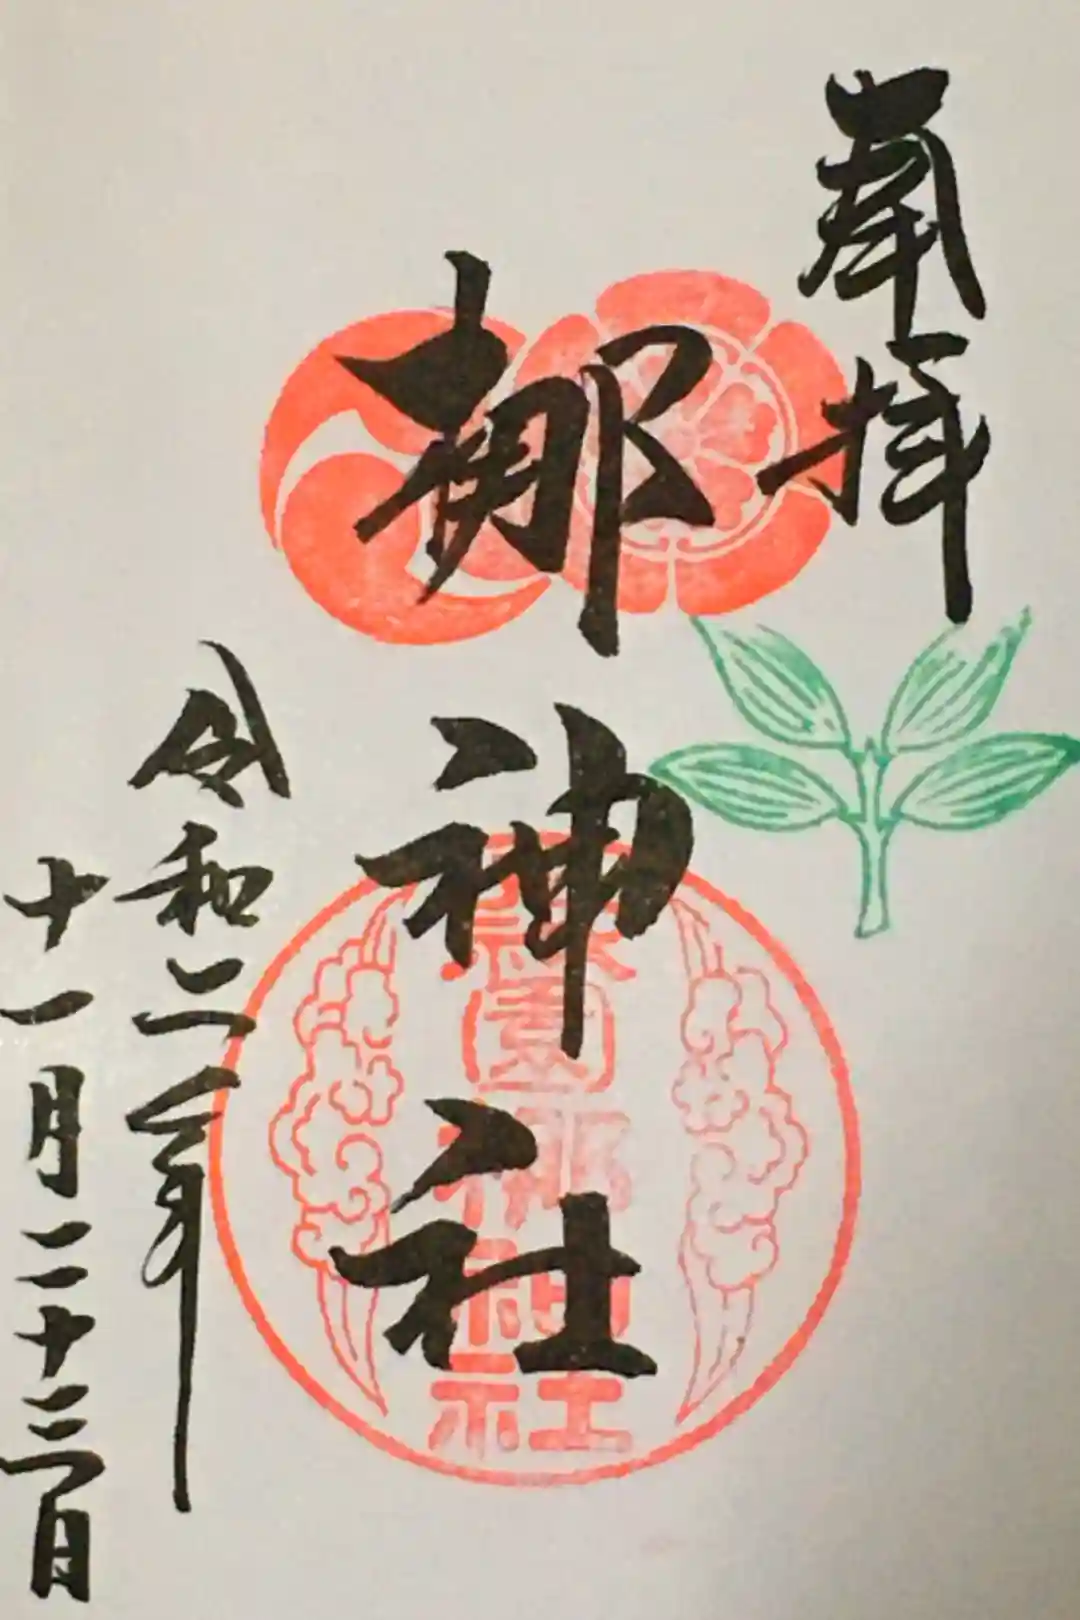 奉拝
梛神社
祇園梛神社
令和二年
十一月二十三日